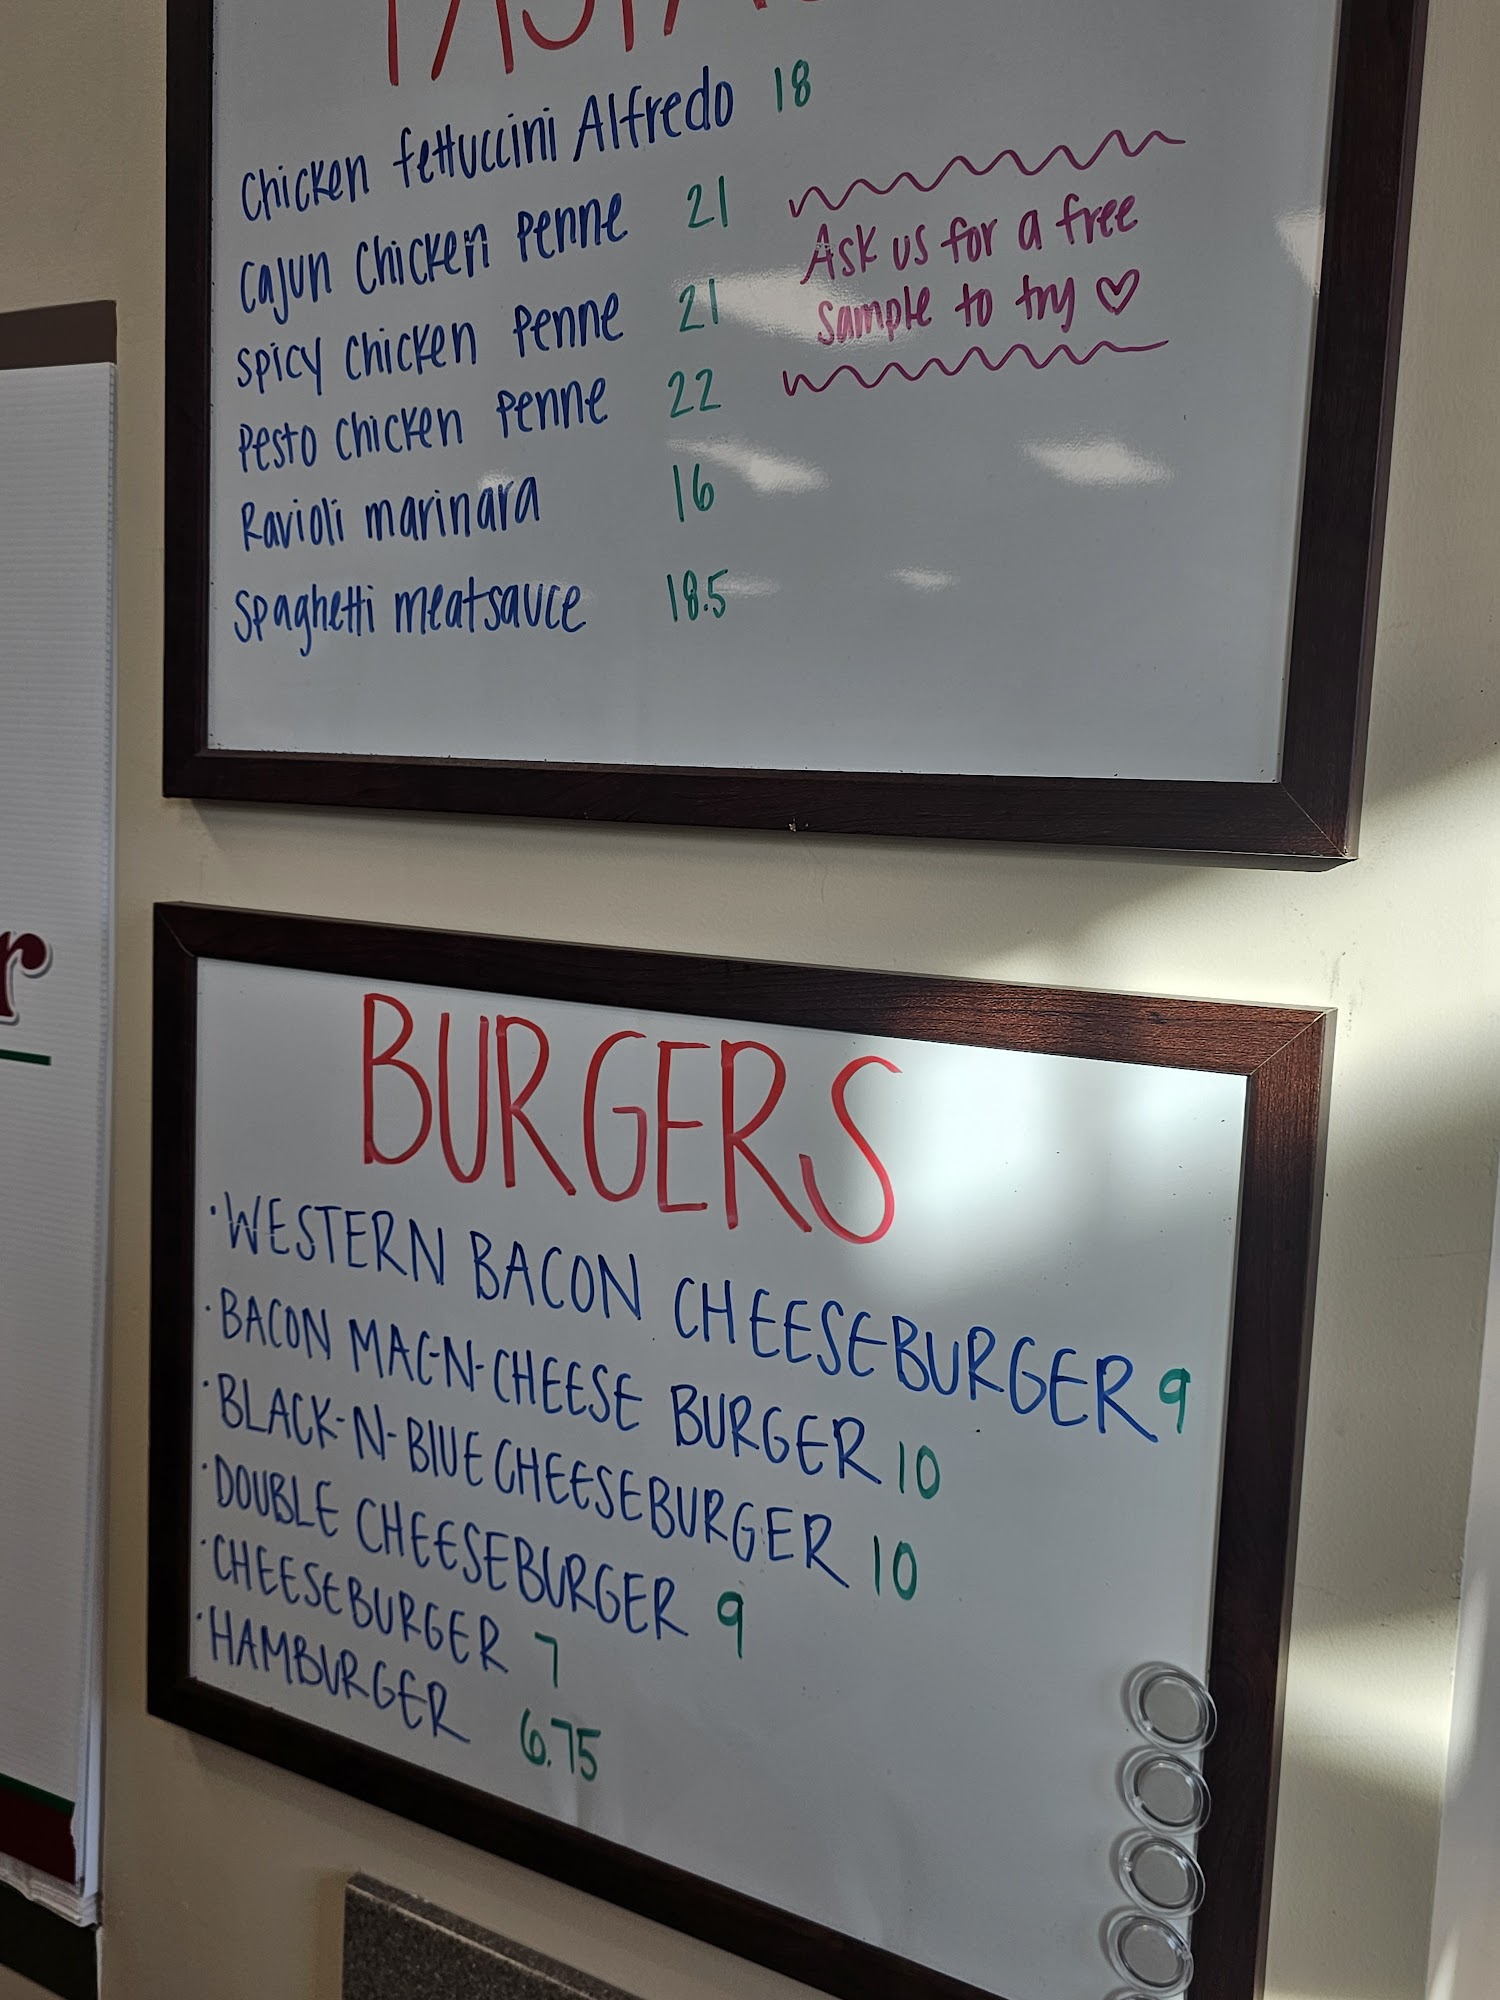 PASTAS
Chicken fettuccini Alfredo 18
Cajun Chicken Penne 21
Spicy Chicken Penne 21
Pesto Chicken Penne 22
Ravioli marinara 16
Spaghetti meatsauce 18.5
Ask us for a free
sample to try ♡
BURGERS
·WESTERN BACON CHEESEBURGER 9
·BACON MAC-N-CHEESE BURGER 10
·BLACK-N-BLUE CHEESEBURGER 10
·DOUBLE CHEESEBURGER 9
·CHEESEBURGER 7
·HAMBURGER 6.75
r